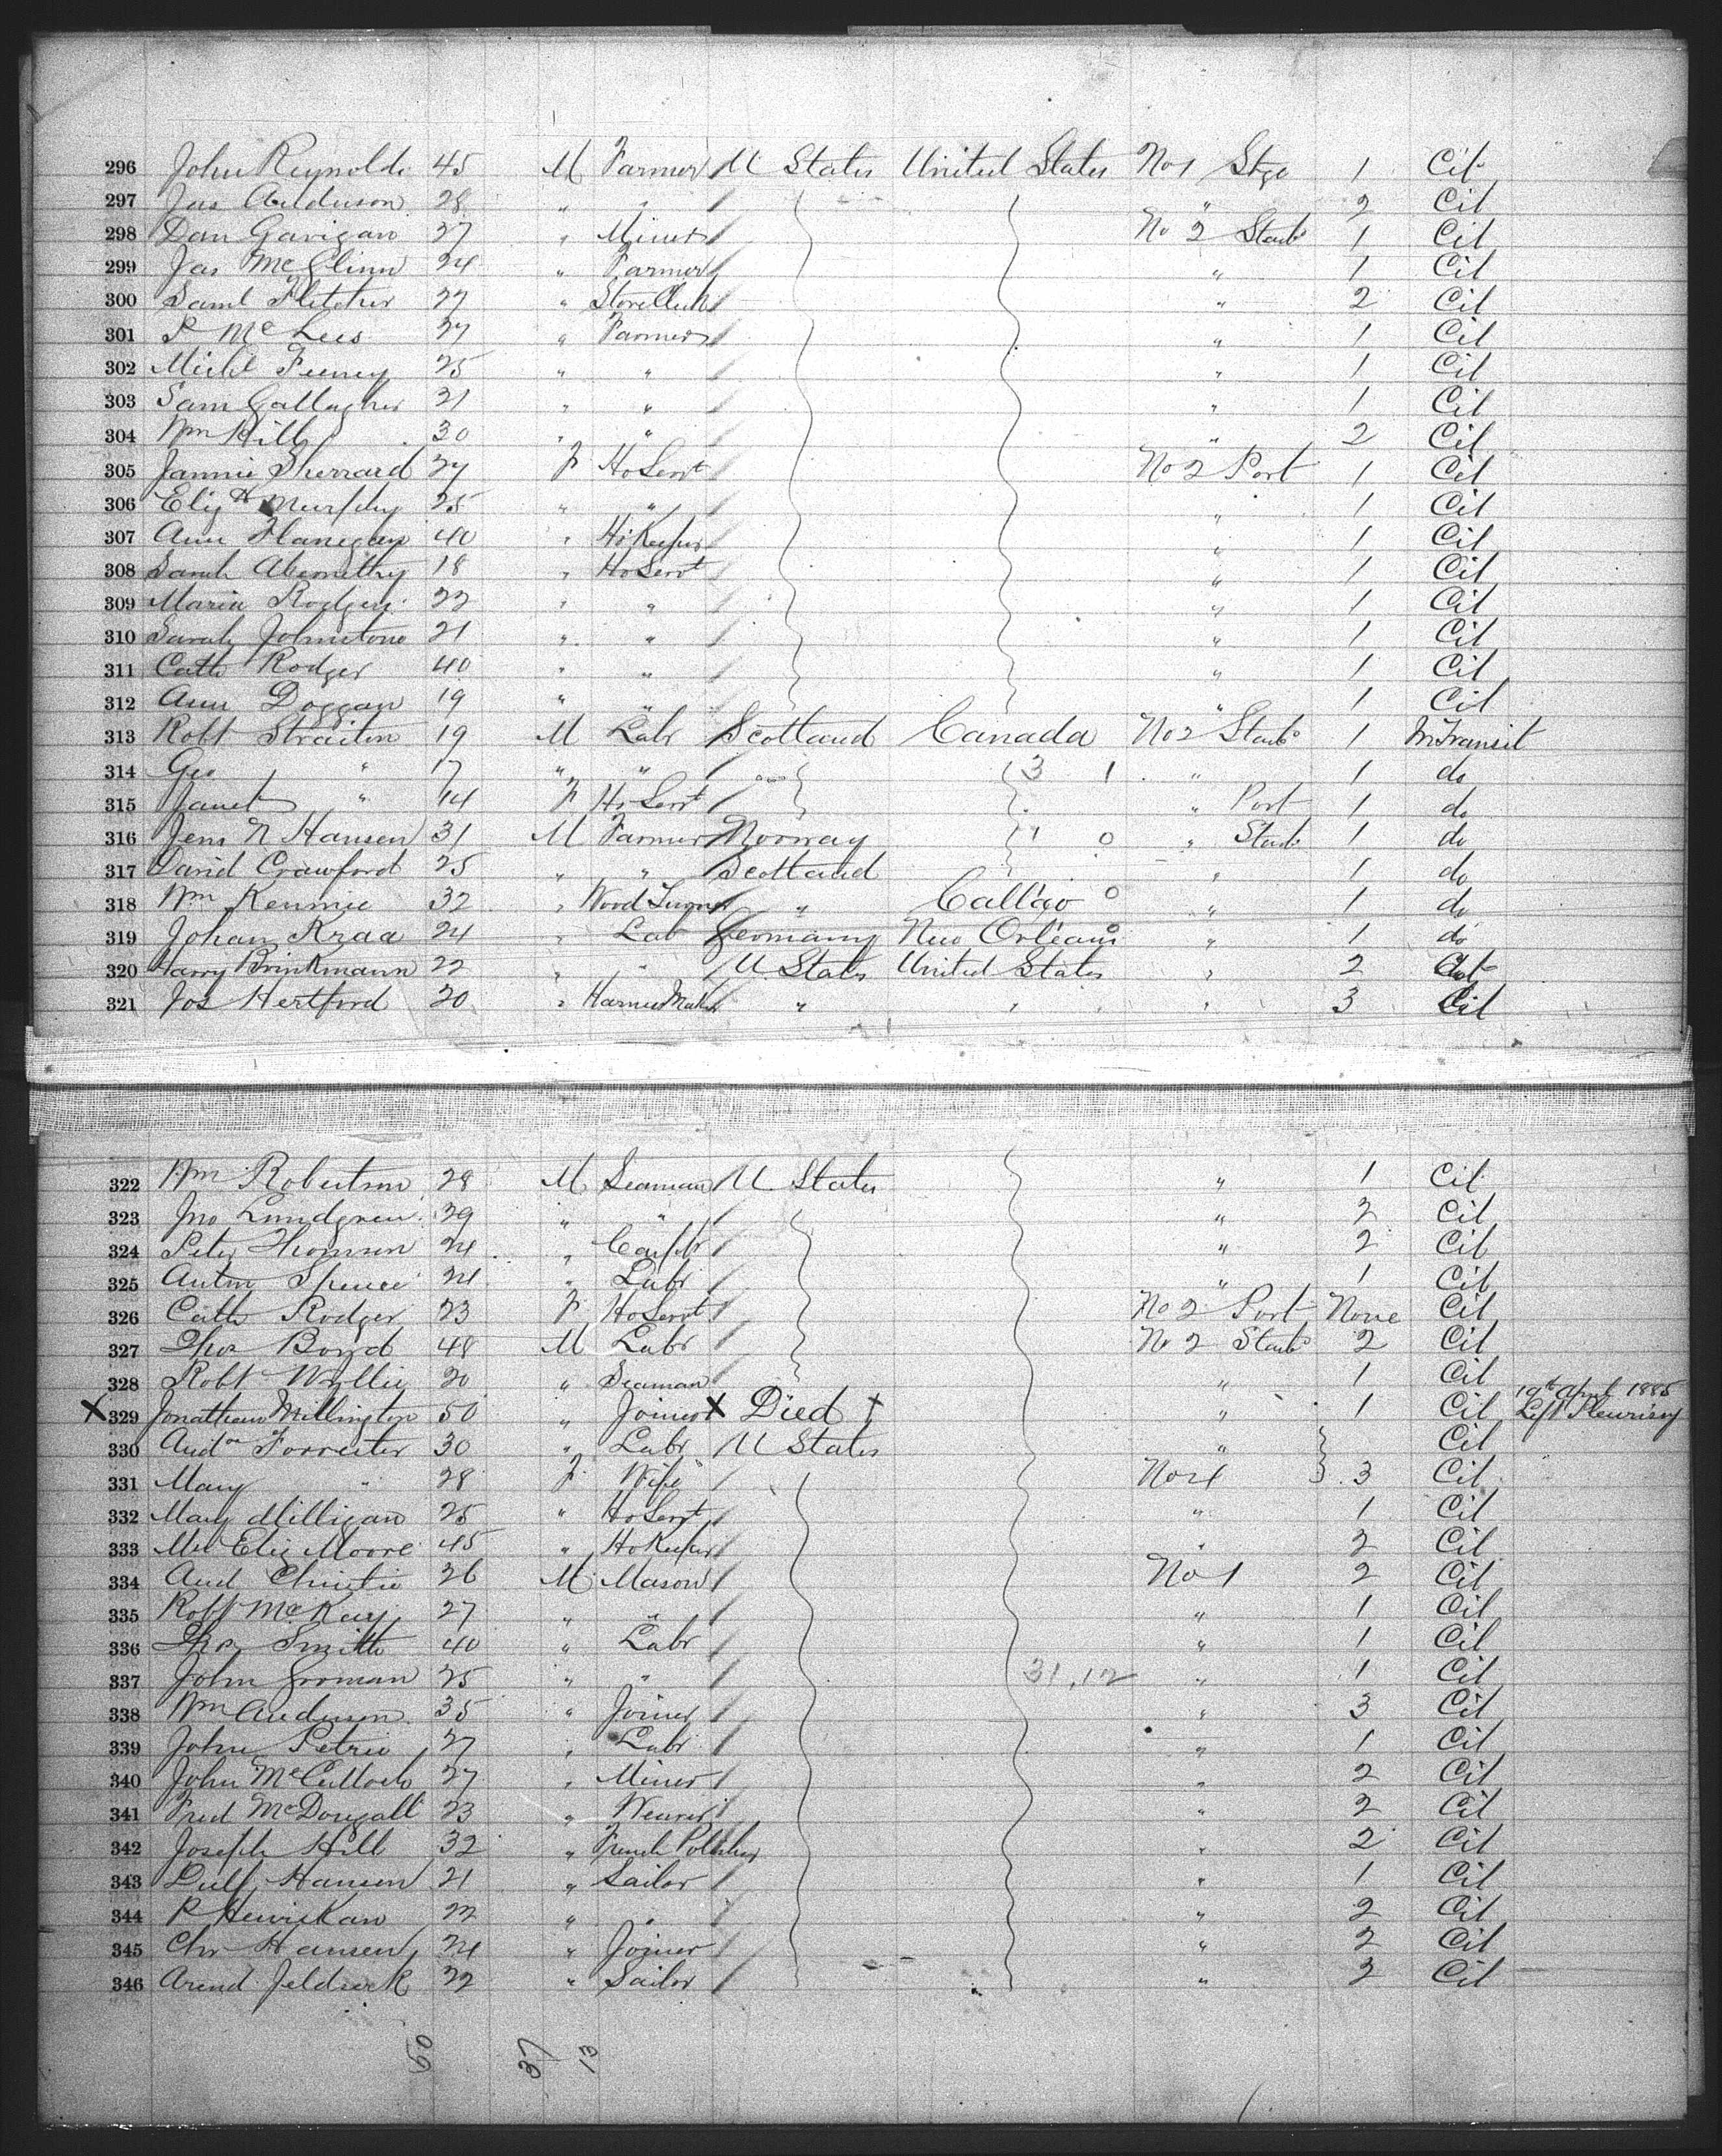 296 John Reynolds 45 M Farmer U States United States No 1 Stge 1 Cit
297 Jas Anderson 28 " " " 2 Cit
298 Dan Gavigan 27 " Miner No 2 Starb 1 Cit
299 Jas McGlinn 24 " Farmer " 1 Cit
300 Saml Fletcher 27 " Store Clerk " 2 Cit
301 P McLees 27 " Farmer " 1 Cit
302 Michl Feeney 25 " " " 1 Cit
303 Sam Gallagher 21 " " " 1 Cit
304 Wm Hill 30 " " " 2 Cit
305 Jannie Sherrard 27 F Ho Servt No 2 Port 1 Cit
306 Elizth Murphy 25 " " " 1 Cit
307 Ann Flanegan 40 " Ho Keeper " 1 Cit
308 Sarah Abernethy 18 " Ho Servt " 1 Cit
309 Maria Rodgers 22 " " " 1 Cit
310 Sarah Johnstone 21 " " " 1 Cit
311 Cath Rodger 40 " " " 1 Cit
312 Ann Doggan 19 " " " 1 Cit
313 Robt Straiton 19 M Labr Scotland Canada No 2 Starb 1 In Transit
314 Geo " 17 " " 3 1 " 1 do
315 Janet " 14 F Ho Servt " Port 1 do
316 Jens N Hansen 31 M Farmer Norway 1 0 " Starb 1 do
317 David Crawford 25 " " Scotland " 1 do
318 Wm Rennie 32 " Wood Turner " Callao 0 " 1 do
319 Johan Kraa 24 " Lab Germany New Orleans 0 " 1 do
320 Harry Brinkmann 22 " " U. States United States " 2 Cit
321 Jos Hertford 20 " Harness Maker " " " 3 Cit
322 Wm Robertson 28 M Seaman U. States " 1 Cit
323 Jno Lundgren 29 " " " 2 Cit
324 Peter Thomson 24 " Carptr " 2 Cit
325 Anton Spence 24 " Labr " 1 Cit
326 Cath Rodger 23 F Ho Servt No 2 Port None Cit
327 Thos Boyd 48 M Labr No 2 Starb 2 Cit
328 Robt Wyllie 20 " Seaman " 1 Cit
X 329 Jonathan Millington 50 " Joiner X Died † " 1 Cit 19th April 1885 Left Pleurisy
330 Andw Forrester 30 " Labr U States " Cit
331 Mary " 28 F Wife No 4 3 Cit
332 Mary Milligan 25 " Ho Servt " 1 Cit
333 Mrs Eliz Moore 45 " Ho Keeper " 2 Cit
334 And Christie 26 M Mason No 1 2 Cit
335 Robt McKay 27 " " " 1 Cit
336 Thos Smith 40 " Labr " 1 Cit
337 John Gorman 25 " " 31,12 " 1 Cit
338 Wm Anderson 35 " Joiner " 3 Cit
339 John Petrie 27 " Labr " 1 Cit
340 John McCulloch 27 " Miner " 2 Cit
341 Fred McDougall 23 " Weaver " 2 Cit
342 Joseph Hill 32 " French Polisher " 2 Cit
343 Hansen 21 " Sailor " 1 Cit
344 P Henrickan 22 " " " 2 Cit
345 Chr Hansen 24 " Joiner " 2 Cit
346 Arend 22 " Sailor " 2 Cit
50 37 13